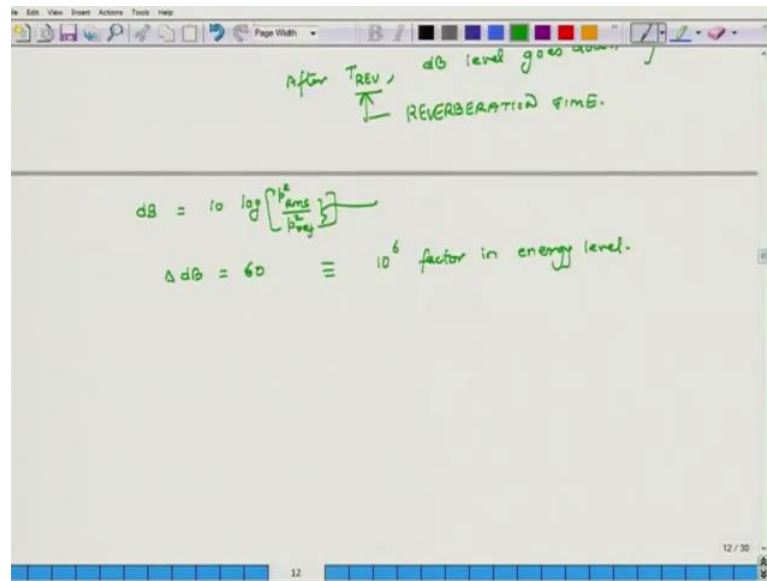 File Edit View Insert Actions Tools Help
Page Width
After T_REV, dB level goes down
REVERBERATION TIME.
dB = 10 log [p²rms / p²ref]
Δ dB = 60 ≡ 10⁶ factor in energy level.
12 / 30
12